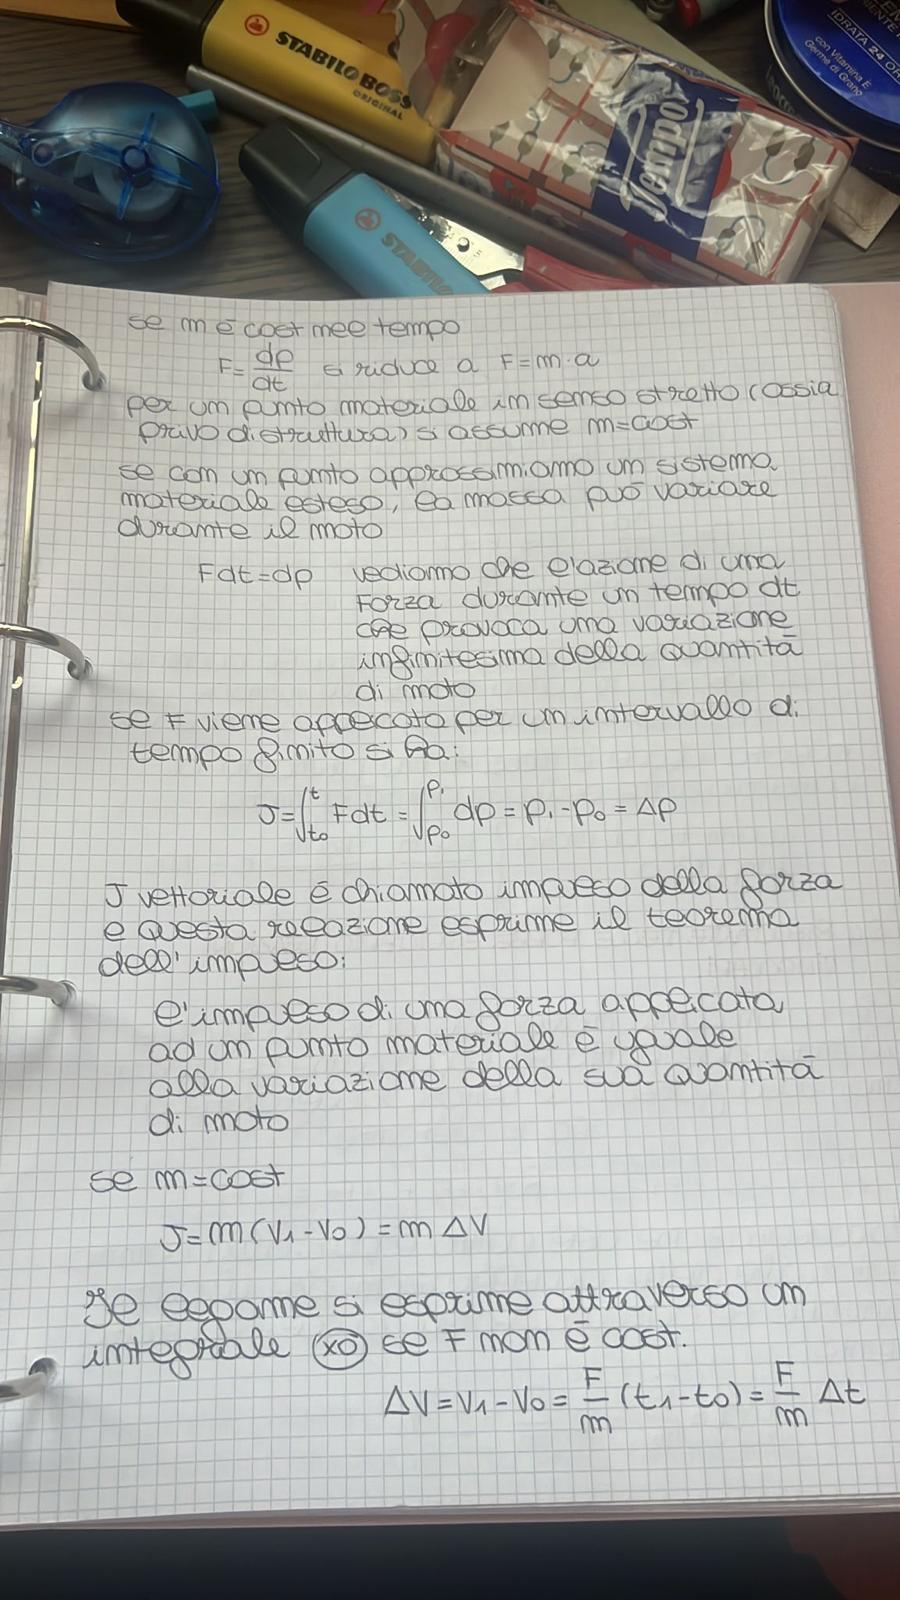 STABILO BOSS
ORIGINAL
STABILO
Tempo
IDRATA 24 OR
con Vitamina E
Germe di Grano
se m è cost nel tempo
F = dp/dt si riduce a F = m · a
per un punto materiale in senso stretto (ossia
privo di struttura) si assume m = cost
se con un punto approssimiamo un sistema
materiale esteso, la massa può variare
durante il moto
Fdt = dp vediamo che l'azione di una
Forza durante un tempo dt
che provoca una variazione
infinitesima della quantità
di moto
se F viene applicata per un intervallo di
tempo finito si ha:
J = ∫ₜ₀ᵗ Fdt = ∫ₚ₀ᵖ¹ dp = p₁ - p₀ = Δp
J vettoriale è chiamato impulso della forza
e questa relazione esprime il teorema
dell'impulso:
l'impulso di una forza applicata
ad un punto materiale è uguale
alla variazione della sua quantità
di moto
se m = cost
J = m (v₁ - v₀) = m Δv
Il legame si esprime attraverso un
integrale xo se F non è cost.
Δv = v₁ - v₀ = F/m (t₁ - t₀) = F/m Δt